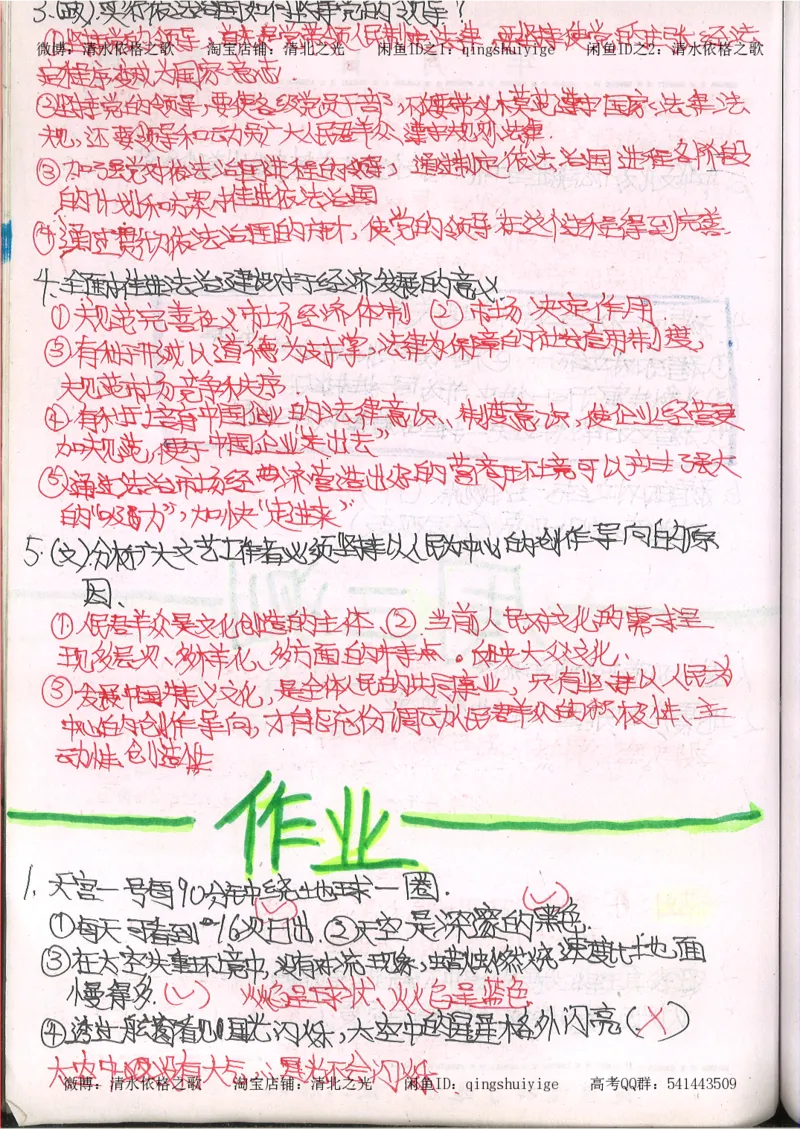 3.(政)实行依法治国如何坚持党的领导?
①坚持党的领导,首先是党带领人民制定法律,要坚持使党的主张经法
微博:清水依格之歌 淘宝店铺:清北之光 闲鱼ID之1:qingshuiyige 闲鱼ID之2:清水依格之歌
定程序变成为国家意志.
②坚持党的领导,要使各级党员干部,不仅要带头模范遵守国家法律、法
规,还要领导和动员广大人民群众、遵守规则、法律.
③加强党对依法治国进程的领导,通过制定依法治国进程各阶段
的计划和方案中推进依法治国
④通过贯彻依法治国的方针,使党的领导在这个过程得到完善.
4.全面推进法治建设对于经济发展的意义
①规范完善社义市场经济体制 ②市场决定作用
③有利于形成以道德为支撑,法律为保障的社会信用制度,
规范市场竞争和秩序.
④有利于培育中国企业的法律意识、制度意识,使企业经营更
加规范,便于中国企业“走出去”
⑤通过法治市场经济营造出好的营商环境可以产生了强大
的“吸引力”,加快“走进来”
5.(文)分析广大文艺工作者必须坚持以人民为中心的创作导向的原
因、
①人民群众是文化创造的主体.②当前人民对文化的需求呈
现多层次、多样化、多方面的特点。反映大众文化.
③发展中国特义文化,是全体人民的共同事业,只有坚持以人民为
中心的创作导向,才能充分调动人民群众的积极性、主
动性、创造性
作业
1.天宫一号每90分钟绕地球一圈.
①每天可看到16次日出.(√)②天空是深邃的黑色.(√)
③在太空失重环境中,没有对流现象,蜡烛燃烧速度比地面
慢得多.(√) 火焰呈球状、火焰呈蓝色.
④透过舷窗看见星光闪烁,太空中的星星格外闪亮(×)
太空中没有大气,∴星光不会闪烁.
微博:清水依格之歌 淘宝店铺:清北之光 闲鱼ID:qingshuiyige 高考QQ群:541443509